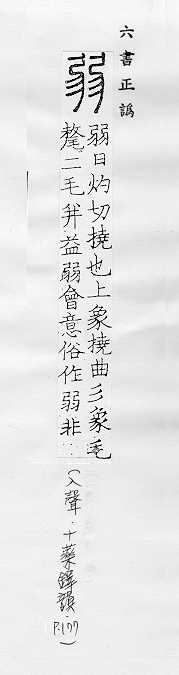 六書正譌
弱
弱日灼切撓也上象撓曲彡象毛
氂二毛并益弱會意俗作弱非
（入聲．十藥鐸韻．P.177）